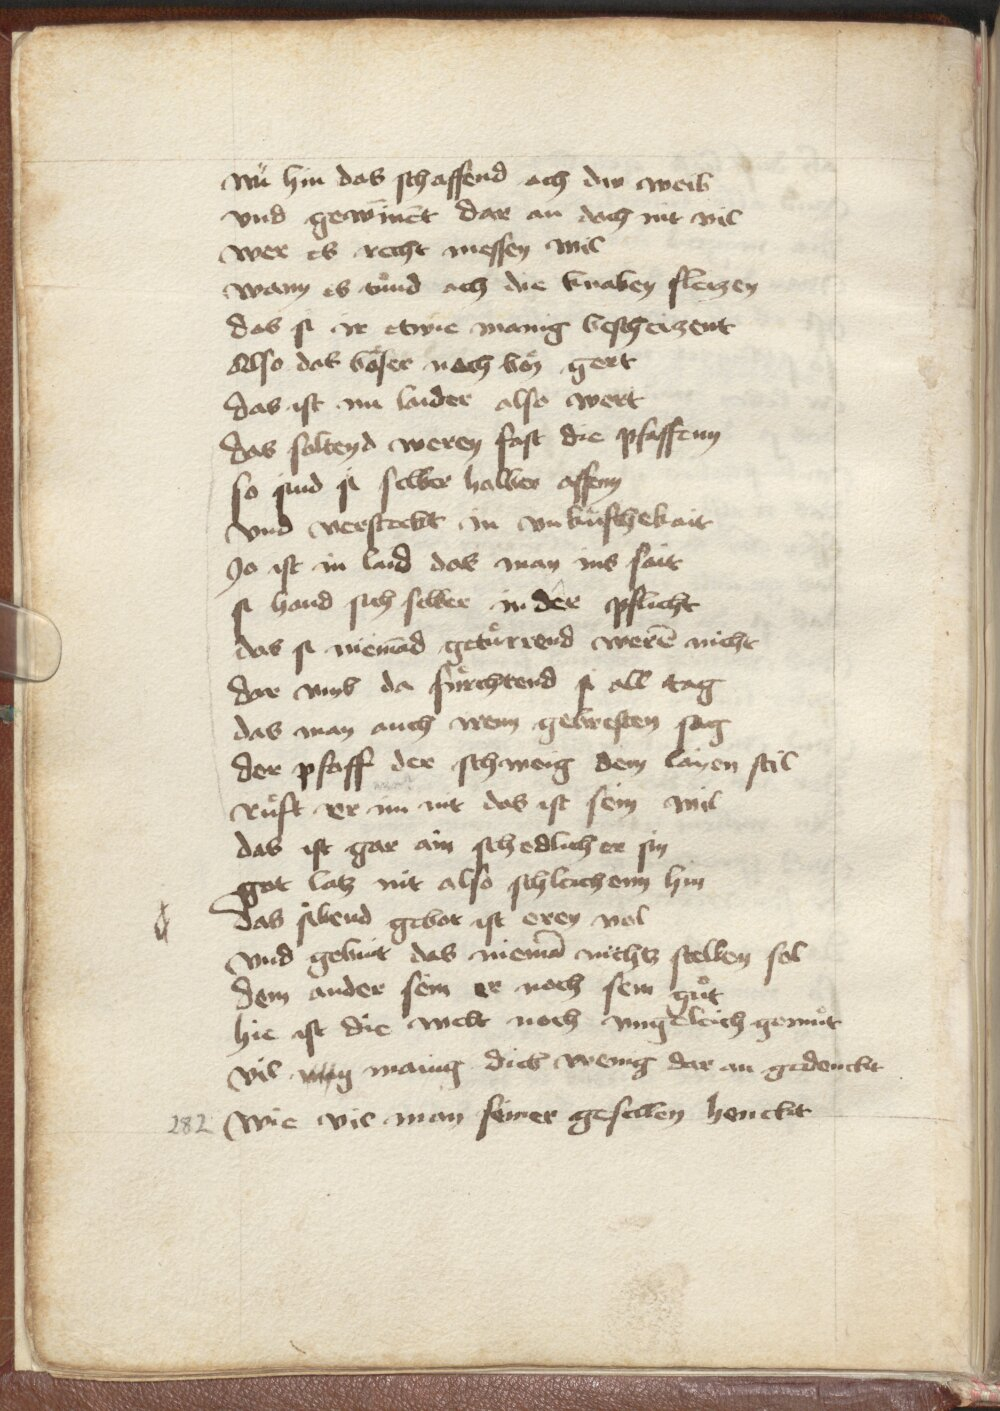 Nu hin das schaffend ach die weib
vnd gewinēt dar an doch nit vil
wer es recht messen wil
wann es tůnd ach die knaben fleizen
das si ir etwie manig bescheizent
Also das bo̊ser noch bo̊ß gert
das ist nu laider also wert
das soltend weren fast die pfaffenn
so sind si selber halber affenn
vnd versteckt in vnküschekait
Jo ist in laid das man ins sait
si hand sich selber in der pflicht
das si niemād getürrend werē nicht
dar vmb da fürchtend si all tag
das man auch irenn gebresten sag
der pfaff der schweig dem laÿen stil
růft er im nit das ist sein wil
das ist gar ain schedlicher sin
got latz nit also schleichenn hin
das sibend gebot ist eren vol
vnd gebüt das niemā nichtz stellen sol
dem ander sein er noch sein gůt
hie ist die welt noch vngeleich gemůt
vil manig dieb wenig dar an gedenckt
282 Wie vil man seiner gesellen henckt